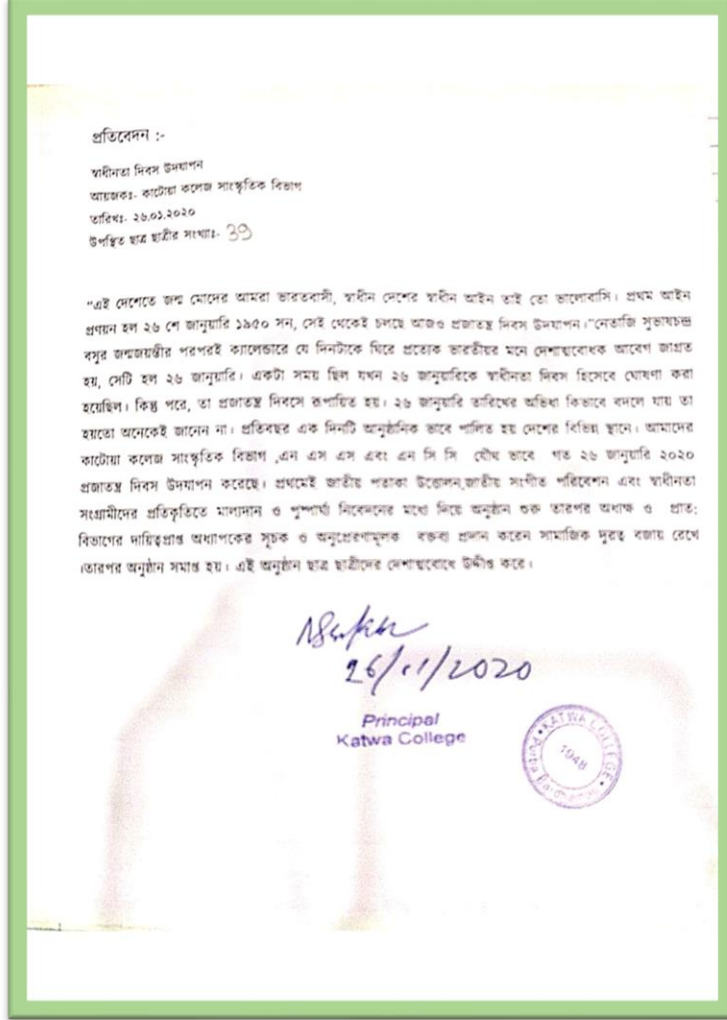 প্রতিবেদন :-
স্বাধীনতা দিবস উদযাপন
আয়জকঃ- কাটোয়া কলেজ সাংস্কৃতিক বিভাগ
তারিখঃ- ২৬.০১.২০২০
উপস্থিত ছাত্র ছাত্রীর সংখ্যাঃ- 39
“এই দেশেতে জন্ম মোদের আমরা ভারতবাসী, স্বাধীন দেশের স্বাধীন আইন তাই তো ভালোবাসি। প্রথম আইন
প্রণয়ন হল ২৬ শে জানুয়ারি ১৯৫০ সন, সেই থেকেই চলছে আজও প্রজাতন্ত্র দিবস উদযাপন।”নেতাজি সুভাষচন্দ্র
বসুর জন্মজয়ন্তীর পরপরই ক্যালেন্ডারে যে দিনটাকে ঘিরে প্রত্যেক ভারতীয়র মনে দেশাত্মবোধক আবেগ জাগ্রত
হয়, সেটি হল ২৬ জানুয়ারি। একটা সময় ছিল যখন ২৬ জানুয়ারিকে স্বাধীনতা দিবস হিসেবে ঘোষণা করা
হয়েছিল। কিন্তু পরে, তা প্রজাতন্ত্র দিবসে রূপায়িত হয়। ২৬ জানুয়ারি তারিখের অভিধা কিভাবে বদলে যায় তা
হয়তো অনেকেই জানেন না। প্রতিবছর এক দিনটি আনুষ্ঠানিক ভাবে পালিত হয় দেশের বিভিন্ন স্থানে। আমাদের
কাটোয়া কলেজ সাংস্কৃতিক বিভাগ ,এন এস এস এবং এন সি সি যৌথ ভাবে গত ২৬ জানুয়ারি ২০২০
প্রজাতন্ত্র দিবস উদযাপন করেছে। প্রথমেই জাতীয় পতাকা উত্তোলন,জাতীয় সংগীত পরিবেশন এবং স্বাধীনতা
সংগ্রামীদের প্রতিকৃতিতে মাল্যদান ও পুষ্পার্ঘ্য নিবেদনের মধ্যে দিয়ে অনুষ্ঠান শুরু তারপর অধ্যক্ষ ও প্রাত:
বিভাগের দায়িত্বপ্রাপ্ত অধ্যাপকের সূচক ও অনুপ্রেরণামূলক বক্তব্য প্রদান করেন সামাজিক দুরত্ব বজায় রেখে
।তারপর অনুষ্ঠান সমাপ্ত হয়। এই অনুষ্ঠান ছাত্র ছাত্রীদের দেশাত্মবোধে উদ্দীপ্ত করে।
26/01/2020
Principal
Katwa College
KATWA COLLEGE
1948